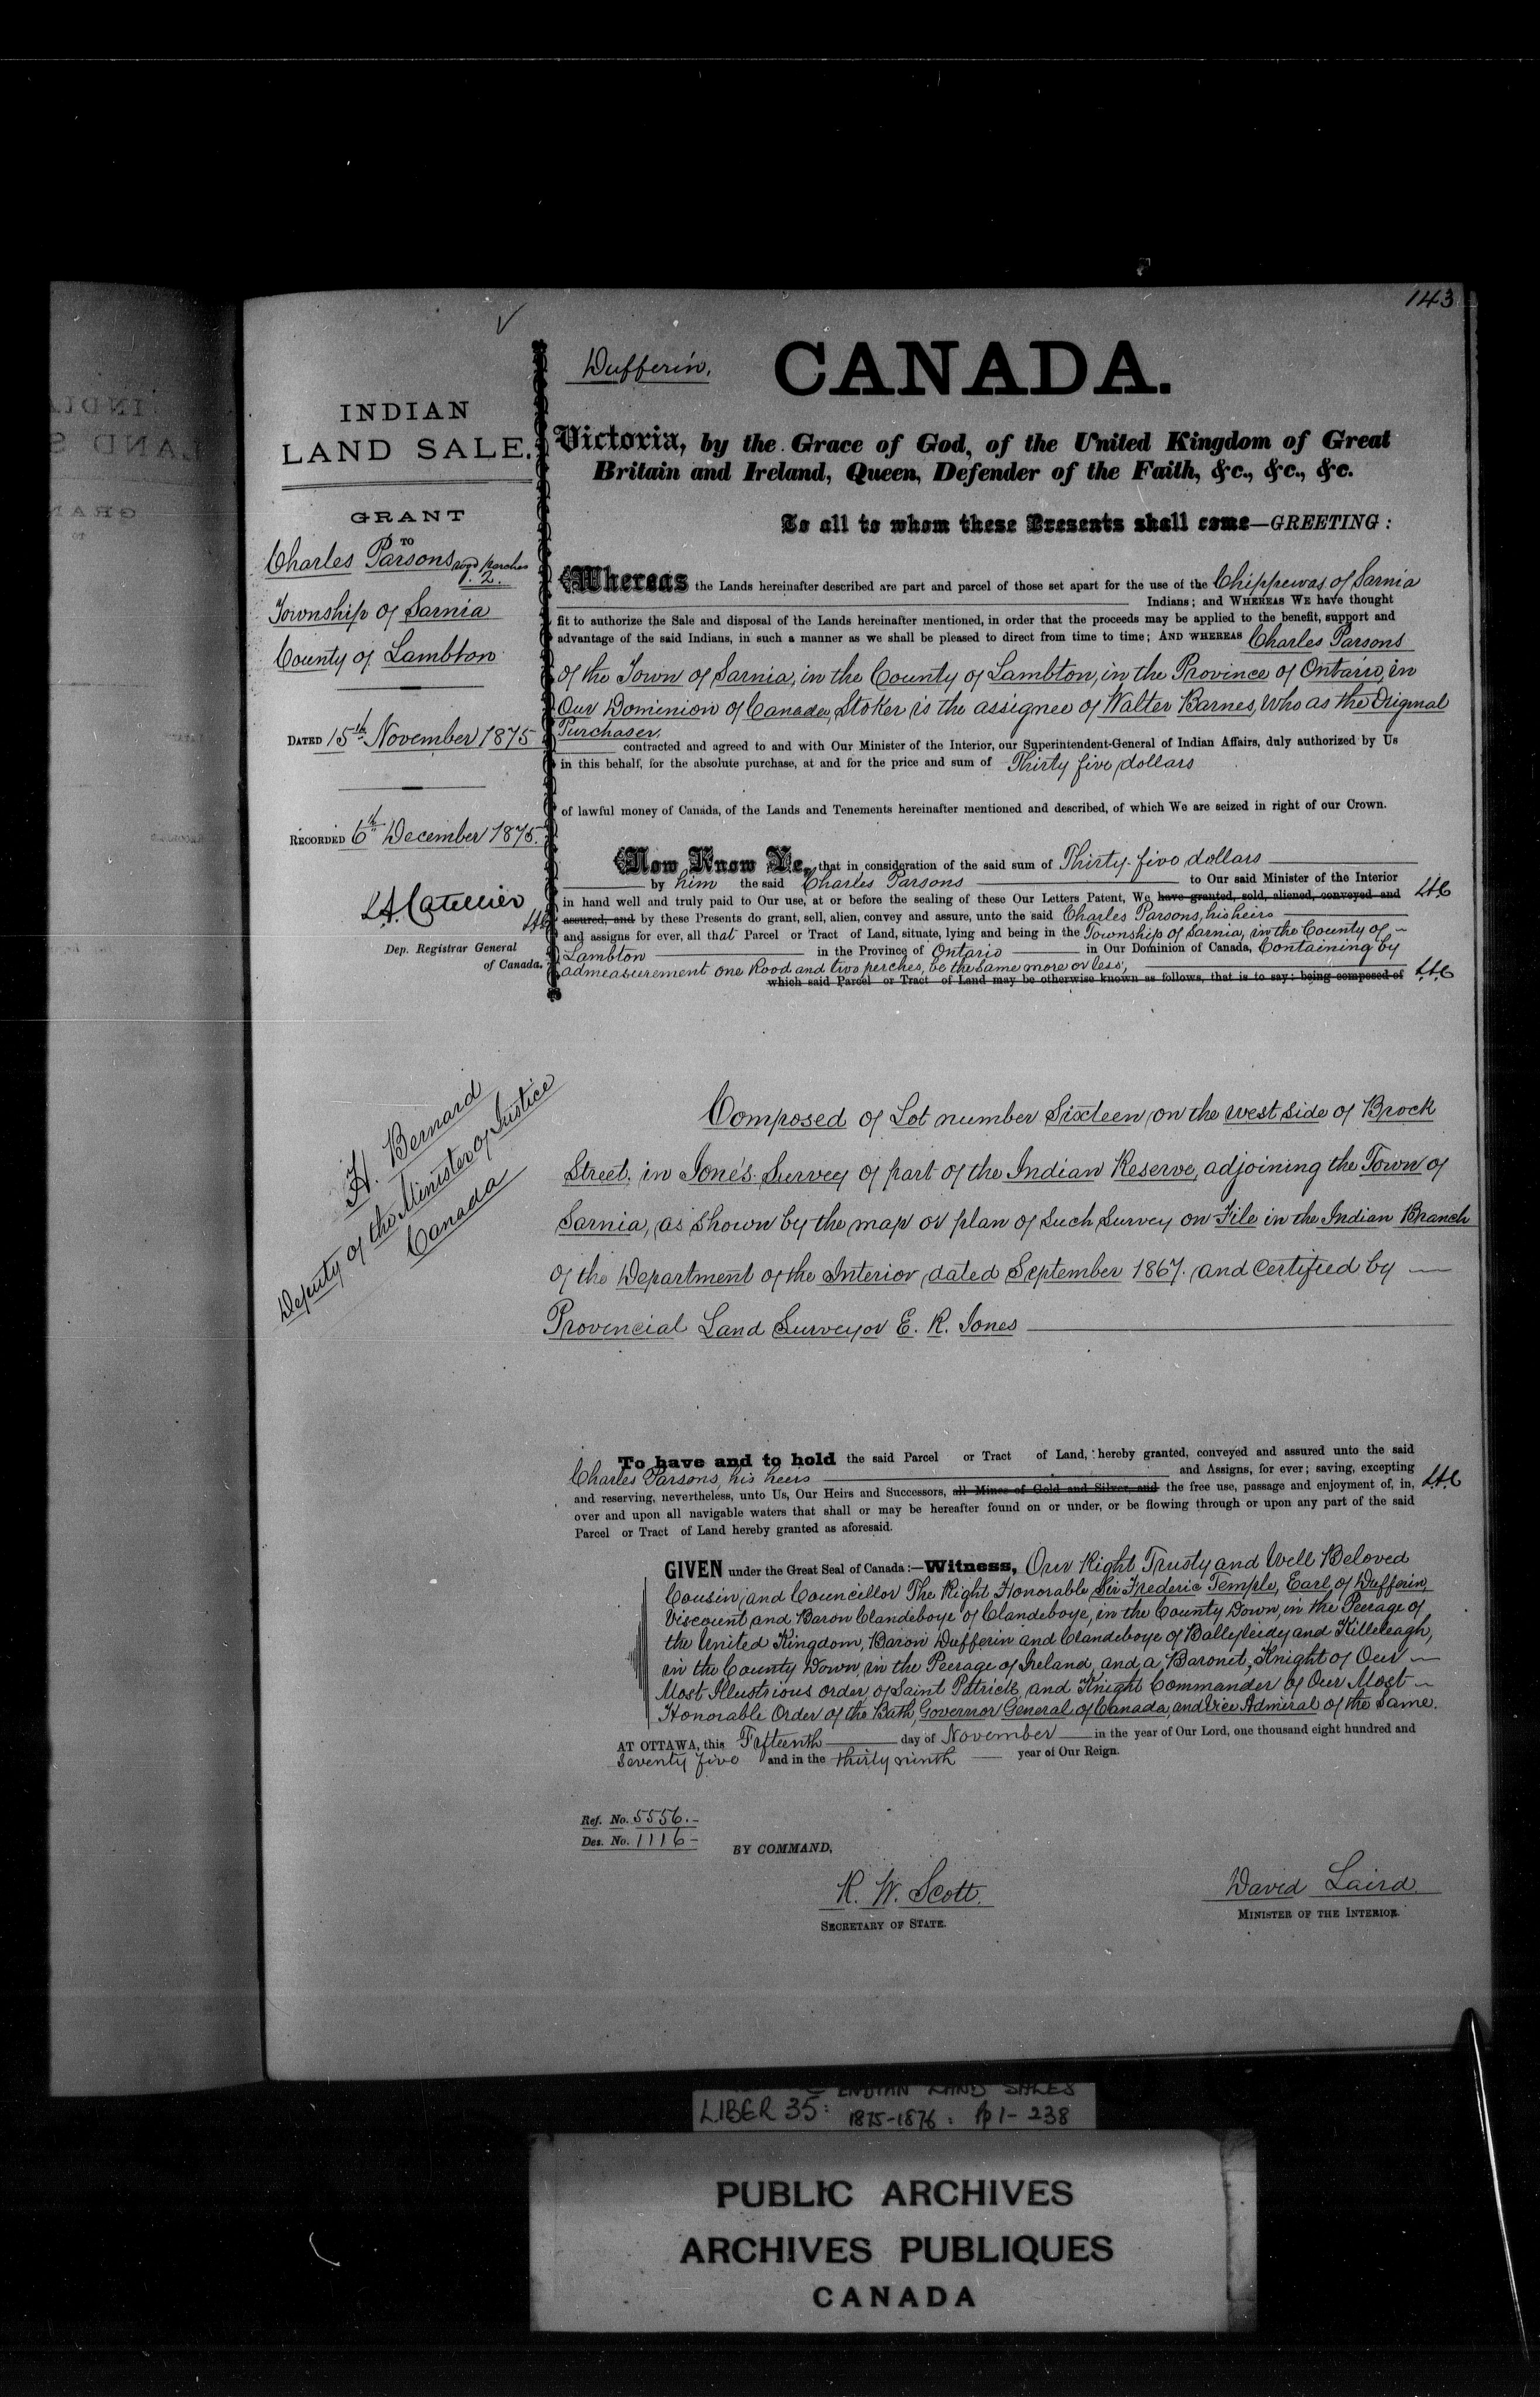 143
Dufferin.
CANADA.
INDIAN
LAND SALE.
GRANT
TO
Charles Parsons Rood Perches
1. 2.
Township of Sarnia
County of Lambton
DATED 15th November 1875
RECORDED 6th December 1875.
L.A. Catellier
LAC
Dep. Registrar General
of Canada.
H. Bernard
Deputy of the Minister of Justice
Canada
Victoria, by the Grace of God, of the United Kingdom of Great
Britain and Ireland, Queen, Defender of the Faith, &c., &c., &c.
To all to whom these Presents shall come—GREETING:
Whereas the Lands hereinafter described are part and parcel of those set apart for the use of the Chippewas of Sarnia
Indians; and WHEREAS WE have thought
fit to authorize the Sale and disposal of the Lands hereinafter mentioned, in order that the proceeds may be applied to the benefit, support and
advantage of the said Indians, in such a manner as we shall be pleased to direct from time to time; AND WHEREAS Charles Parsons
of the Town of Sarnia, in the County of Lambton, in the Province of Ontario, in
Our Dominion of Canada, Stoker is the assignee of Walter Barnes, who as the Original
Purchaser,
contracted and agreed to and with Our Minister of the Interior, our Superintendent-General of Indian Affairs, duly authorized by Us
in this behalf, for the absolute purchase, at and for the price and sum of Thirty five dollars
of lawful money of Canada, of the Lands and Tenements hereinafter mentioned and described, of which We are seized in right of our Crown.
Now Know Ye, that in consideration of the said sum of Thirty-five dollars
by him the said Charles Parsons to Our said Minister of the Interior
in hand well and truly paid to Our use, at or before the sealing of these Our Letters Patent, We have granted, sold, aliened, conveyed and LAC
assured, and by these Presents do grant, sell, alien, convey and assure, unto the said Charles Parsons, his heirs
and assigns for ever, all that Parcel or Tract of Land, situate, lying and being in the Township of Sarnia, in the County of
Lambton in the Province of Ontario in Our Dominion of Canada, Containing by
admeasurement one Rood and two perches, be the same more or less,
which said Parcel or Tract of Land may be otherwise known as follows, that is to say: being composed of LAC
Composed of Lot number Sixteen on the west side of Brock
Street, in Jones's Survey of part of the Indian Reserve, adjoining the Town of
Sarnia, as shown by the map or plan of such Survey on File in the Indian Branch
of the Department of the Interior, dated September 1867. and certified by
Provincial Land Surveyor E. R. Jones
To have and to hold the said Parcel or Tract of Land, hereby granted, conveyed and assured unto the said
Charles Parsons, his heirs and Assigns, for ever; saving, excepting
and reserving, nevertheless, unto Us, Our Heirs and Successors, all Mines of Gold and Silver, and the free use, passage and enjoyment of, in, LAC
over and upon all navigable waters that shall or may be hereafter found on or under, or be flowing through or upon any part of the said
Parcel or Tract of Land hereby granted as aforesaid.
GIVEN under the Great Seal of Canada:—Witness, Our Right Trusty and Well Beloved
Cousin and Councillor The Right Honorable Sir Frederic Temple, Earl of Dufferin,
Viscount and Baron Clandeboye of Clandeboye, in the County Down, in the Peerage of
the United Kingdom, Baron Dufferin and Clandeboye of Ballyleidy and Killeleagh,
in the County Down, in the Peerage of Ireland, and a Baronet, Knight of Our
Most Illustrious order of Saint Patrick and Knight Commander of Our Most
Honorable Order of the Bath, Governor General of Canada, and Vice Admiral of the Same.
AT OTTAWA, this Fifteenth day of November in the year of Our Lord, one thousand eight hundred and
seventy five and in the thirty ninth year of Our Reign.
Ref. No. 5556.
Des. No. 1116
BY COMMAND,
R. W. Scott.
SECRETARY OF STATE.
David Laird
MINISTER OF THE INTERIOR.
INDIAN LAND SALES
LIBER 35: 1875-1876: pp 1-238
PUBLIC ARCHIVES
ARCHIVES PUBLIQUES
CANADA